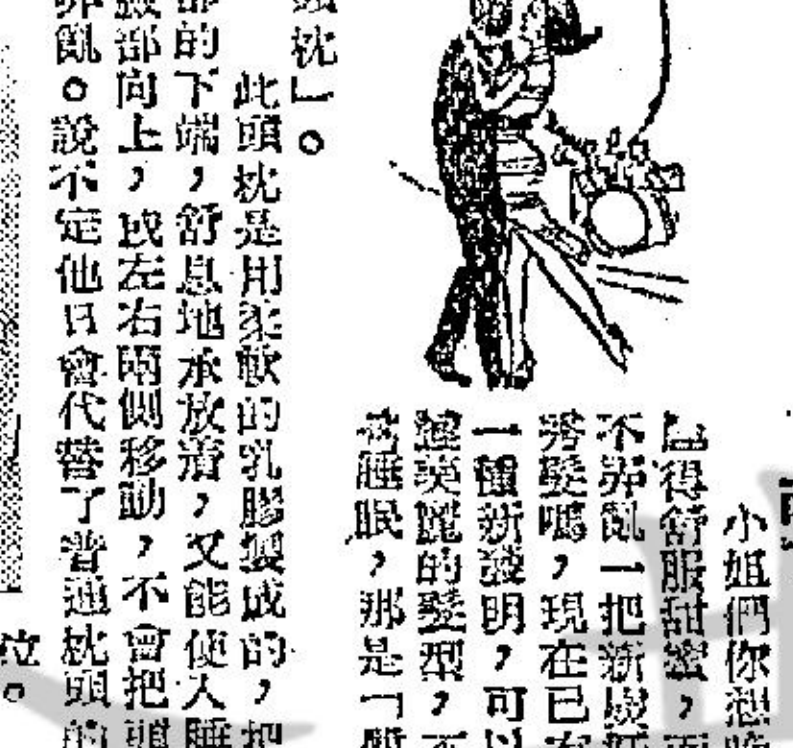 小姐們你想
得舒服甜蜜，而
不弄亂一把新
秀髮嗎，現在已
一種新發明，可以
美麗的髮型，不
睡眠，那是「
頭枕」。
此頭枕是用柔軟的乳膠製成的，把
部的下端，舒息地承放着，又能使人睡
部向上，或左右兩側移動，不會把頭
弄亂。說不定他日會代替了普通枕頭的
位。